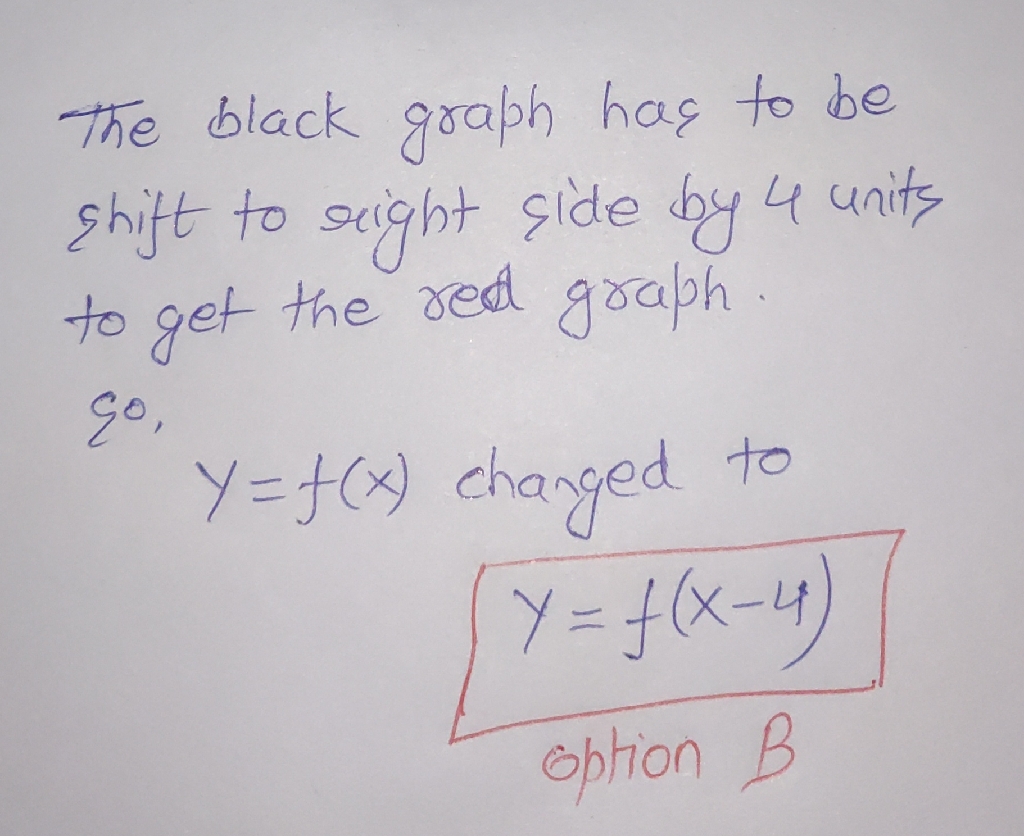 The black graph has to be
shift to right side by 4 units
to get the red graph.
So,
Y = f(x) changed to
Y = f(x-4)
option B